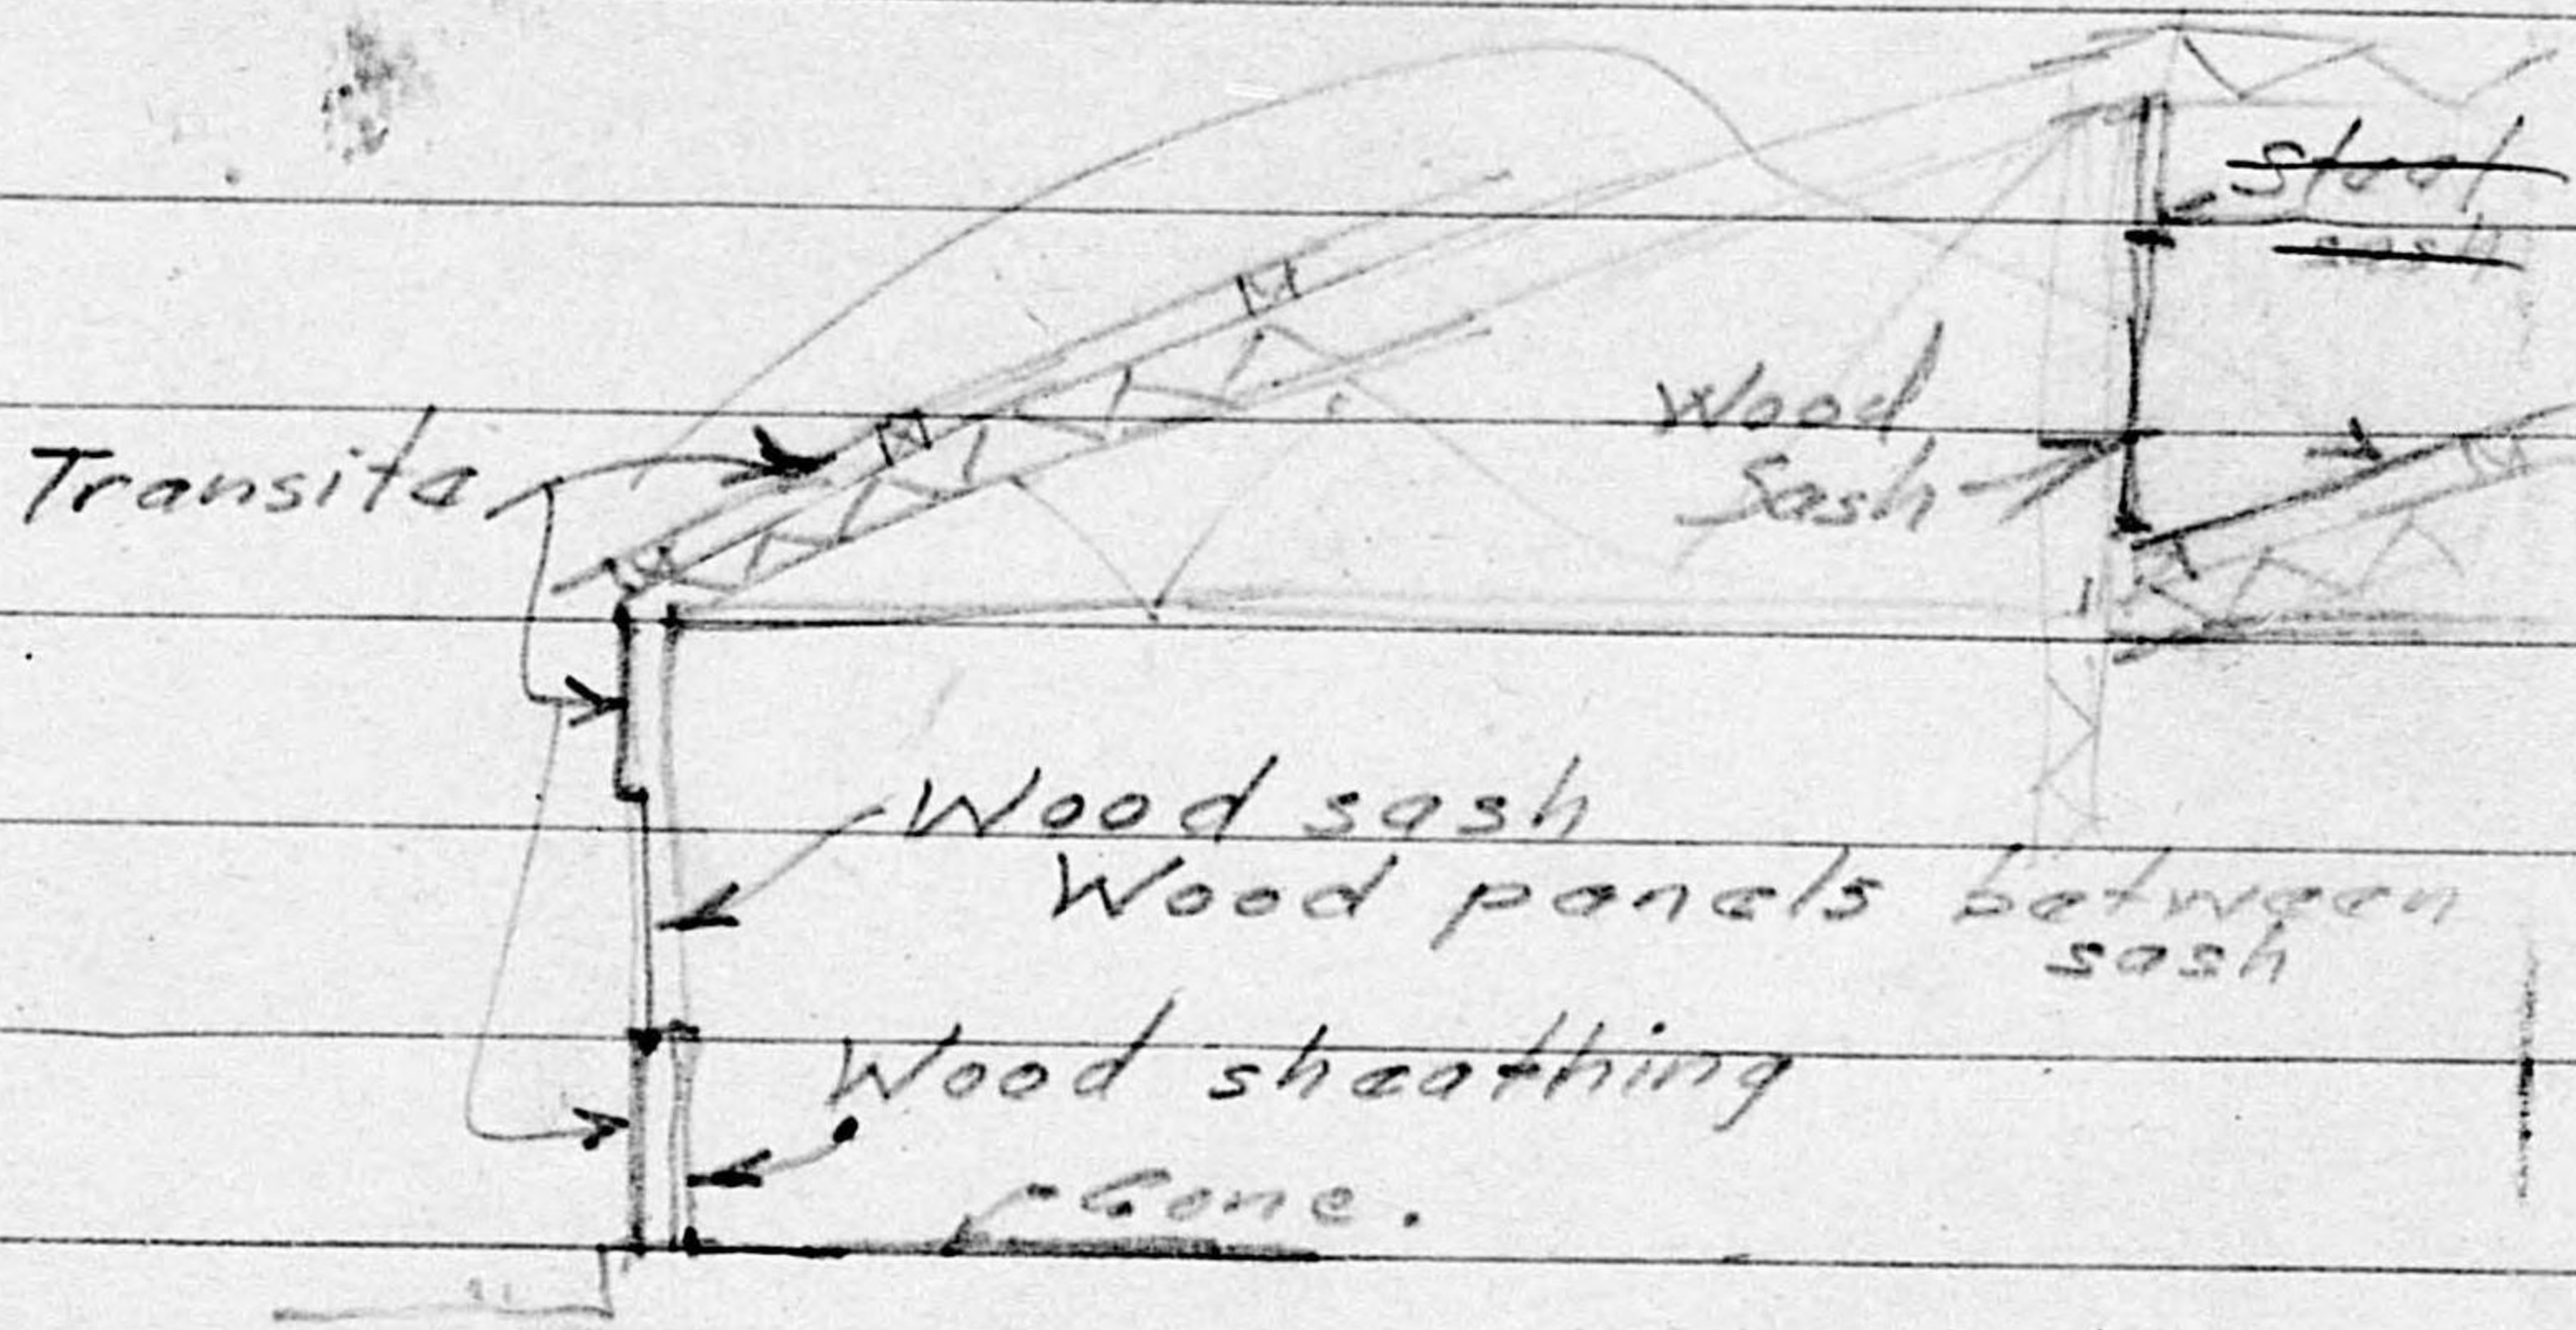 Steel
sash
Wood
Sash
Transite
Wood sash
Wood panels between
sash
Wood sheathing
Conc.